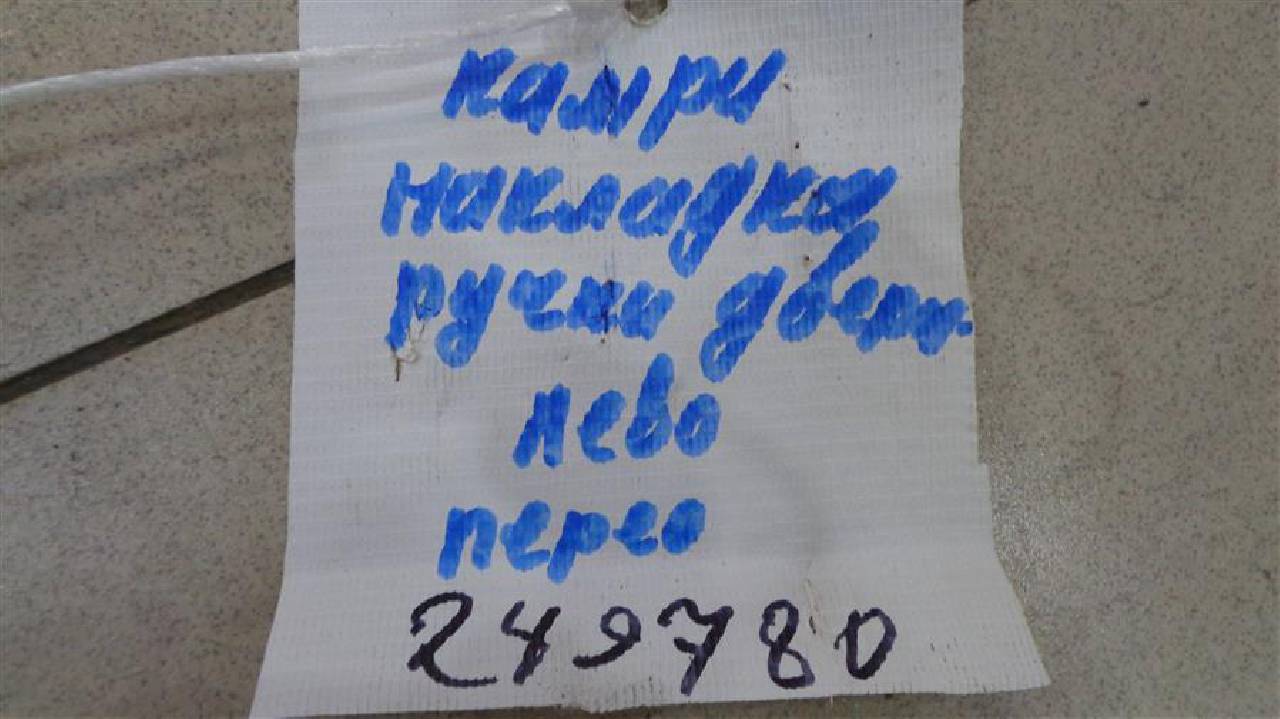 камри
накладка
ручки двери
лево
перео
249780